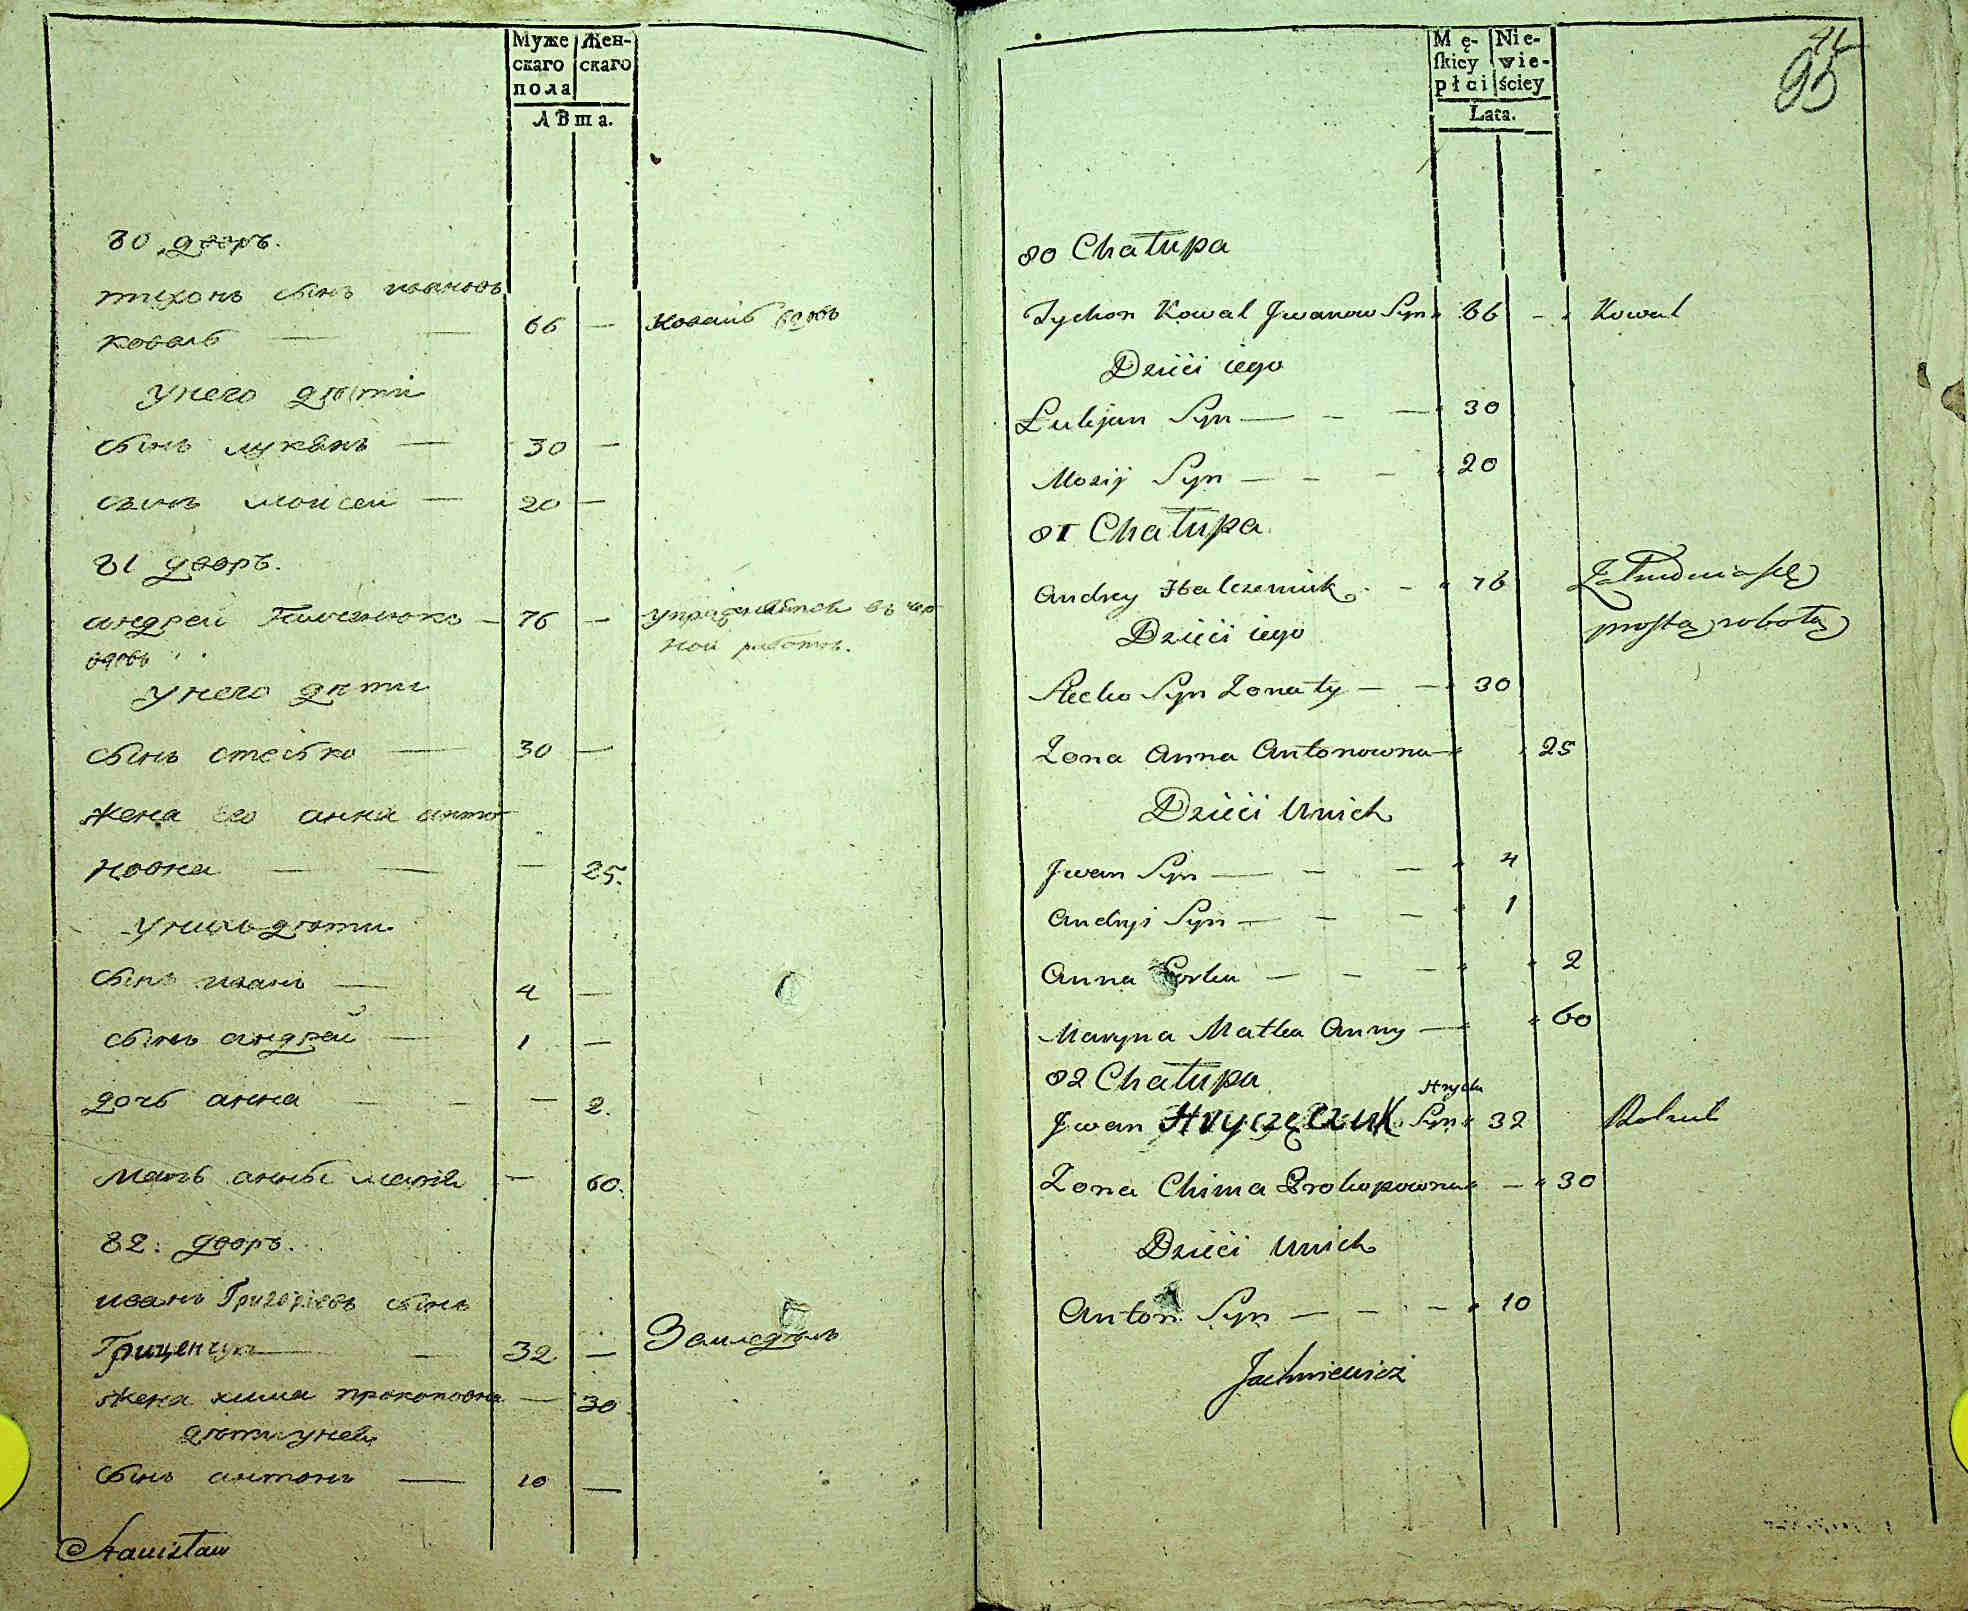 Муже
скаго
пола
Жен-
скаго
лѣта.
80 дворъ.
тихонъ сынъ ивановъ
коваль — — 66 — Коваль вдовъ
У него дѣти
сынъ лукянъ — 30 —
сынъ моисей — 20 —
81 дворъ.
андрей — 76 — упражняется въ чер
вдовъ ной работѣ.
У него дѣти
сынъ стецько — 30 —
жена его анна анто
новна — — — 25.
У нихъ дѣти
сынъ иванъ — 4 —
сынъ андрей — 1 —
дочь анна — — — 2.
мать анны — 60.
82. дворъ.
иванъ Григорьевъ сынъ
Гриценчукъ — — 32 — Земледѣлъ
жена хима прокоповна — 30
дѣти у нея
сынъ антонъ — 10 —
Stanisław
Mę-
skiey
płci
Nie-
wie-
ściey
Lata.
95
80 Chałupa
Tychon Kowal Jwanow Syn 66 - Kowal
Dzieci iego
Lukjan Syn — - — 30
Mosij Syn — - - 20
81 Chałupa
Andrey Halczeniuk - 76 Zatrudnia się
Dzieci iego prostą robotą
Stecko Syn Zonaty — — 30
Zona Anna Antonowna 25
Dzieci Unich
Jwan Syn — - — 4
Andryi Syn — - — 1
Anna Corka — — — 2
Maryna Matka Anny — 60
82 Chałupa
Hrycka
Jwan Hryczęczuk Syn 32 Rolnik
Zona Chima Prokopowna — 30
Dzieci Unich
Anton Syn — - — 10
Jachniewicz